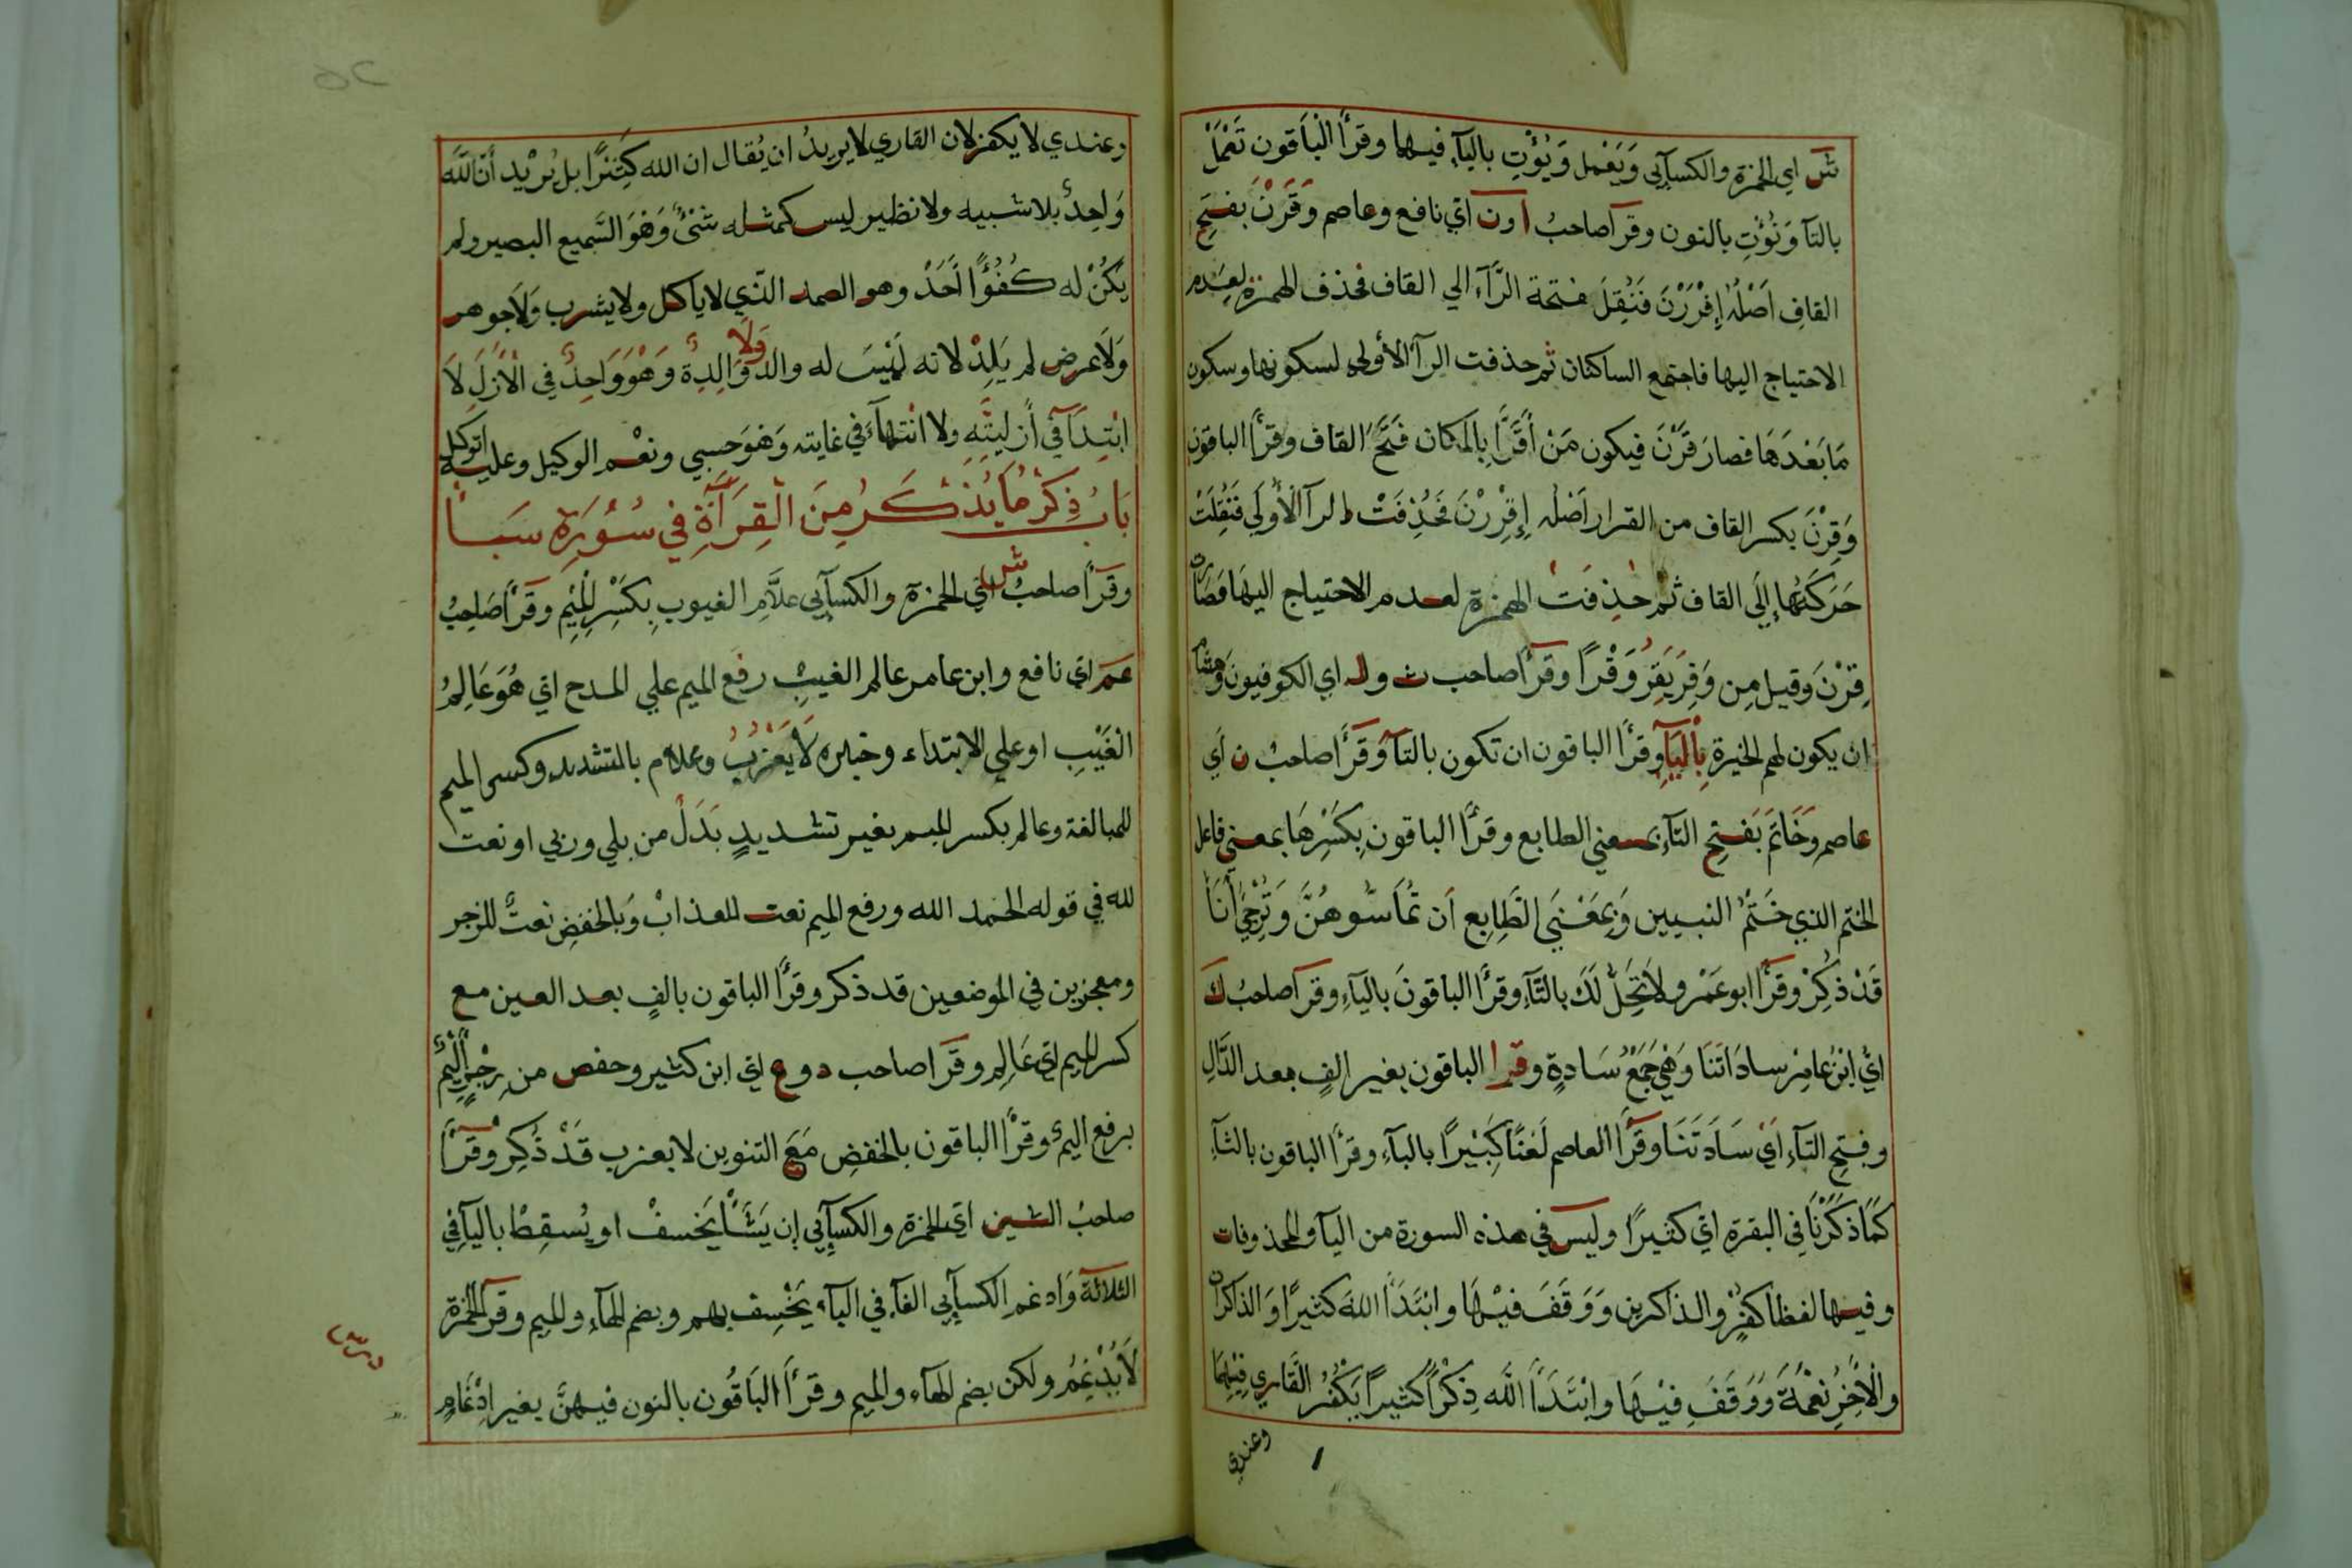 ش اي الحمزة والكسآئى وَيَعْمل وَيُؤْتِ باليآء فيها وقرأ الْبَاقون تَعْمَلْ
بالتآ وَنُؤْتِ بالنون وقرآ صاحبُ ا ون اي نافع وعاصم وَقَرْنَ بفتحِ
القافِ اَصْلُه إِقْرَرْنَ فَنُقِلَ فتحة الرَّآء الي القاف فحذف الهمزة لعدم
الاحتياج اليها فاجتمع الساكنان ثم حذفت الرآ الأولى لسكونها وسكون
مَا بَعْدَهَا فصارَ قَرْنَ فيكون مَنْ أَقَرَّ بالمكان فتحَ القاف وقرأ الباقون
وَقِرْنَ بكسر القاف من القرار اَصْله إِقْرِرْنَ فَحُذِفَتْ الرآ الأولَي فَنُقِلَتْ
حَرَكَتُها إِلَي القاف ثم حذفت الهمزة لعدم الاحتياج اليهَا فصَارَ
قِرْنَ وقيل مِن وَقِرَ يَقِرُ وَقْرًا وقرآ صاحب ث و ل اي الكوفيون وهشام
ان يكون لهم الخيرة بِالْيَآءِ وقرأ الباقون ان تكون بالتآ وَقَرَأ صاحبُ ن اَي
عاصم وَخَاتَمَ بَفتحِ التّآءِ بمعني الطابع وقرأ الباقون بِكَسْرِهَا بمعني فاعل
الختم الذي خَتَمَ النبيين وَبِمَعْنَي الطَابِع اَن تُمَاسُّوهُنَّ وَتُرْجِئُ أَنَا
قَدْ ذُكِرْ وقَرَأ ابو عَمْرو لاَ تَحِلُّ لَكَ بالتَّآءِ وقرأ الباقونَ باليَآءِ وقرآ صاحبُ ك
ايْ ابْنُ عامِرْ سادَاتَنَا وَهْيَ جَمْعُ سَادةٍ وقرا الباقون بغير الفٍ بعد الدَّالِ
وفتحِ التآءِ ايْ سَادَتَنَا وقرأ العاصم لَعْنًا كَبْيرًا بالبآءِ وقرأ الباقون بالثآءِ
كمَا ذكَرْنَا فِي البقرة اي كثيرًا وليس في هذه السورة من اليآ والمحذوفات
وفيها لفظا كفرٍ والذاكرين وَوَقَفَ فيْهَا وابْتَدَأ اللّهَ كثيرًا وَالذاكران
والْأخِرُ نِعْمَةَ وَوَقَفَ فيْهَا وابْتَدَأ اللّه ذِكْرًا كَثيرًا يَكْفُرُ القَاري فِيْهِمَا
وعندي
وعندي لا يكفر لان القاري لا يريدُ ان يُقال ان الله كَثِيرًا بل يُرْيد أن اللّه
وَاحِدٌ بلا شبيه ولا نظير ليس كمثله شَئٌ وَهُوَ السَّميع البصير ولم
يَكُنْ له كُفُوًا أَحَدْ وهو الصمد الذي لا ياكل ولا يشرب وَلاَ جوهر
وَلاَ عرض لم يَلِدْ لانه لَيْسَ له والد وَلاَ وَالِدة وَهْوَ وَاحِدٌ في الأزلِ لاَ
ابْتِدَآءَ فِي أزليتِه ولا انْتهآءَ في غايته وَهوَ حسبي ونعْم الوكيل وعليه اتوكل
بَابُ ذِكْرِ مَا يُذْكَرُ مِنَ الْقِرَآءَةِ في سُوْرَةِ سَبَأ
وقَرَأ صاحبُ ش اي الحمزة والكسآئى علاَّمِ الغيوبِ بِكَسْرِ الْمِيْمِ وقَرَأ صَاحِبُ
عَمَ اي نافع وابن عامر عالم الغيبِ رفع الميم علي المدح اي هُوَ عَالِمُ
الْغَيْبِ او علي الابتداء وخبره لاَ يَعْزُبُ وعلام بالتشديد وكسر الميم
للمبالغة وعالم بكسر الميم بغير تشديدٍ بَدَلٌ من بلي وربي او نعت
لله في قوله الحمد الله ورفع الميم نعت للعذابْ وَبالخفضِ نعتٌ للزجر
ومعجزين في الموضعين قد ذكر وقرأ الباقون بالفٍ بعد العين مع
كسر الميم اي عَالِمِ وقَرَا صاحب د و ع اي ابن كثير وحفص من رِجْزٍ أَلْيْمٌ
برفع اليمٌ وقرأ الباقون بالخفضِ مَعَ التنوين لا يعزب قَدْ ذُكِرْ وقَرَأ
صاحبُ الشين اي الحمزة والكسآئي إن يَشَأْ يَخسفْ او يُسقِطْ باليآءِ في
الثلاثة وَادغم الكسآئي الفآء في البآء يَخْسِف بهم وبضم الهآءِ والميم وقرآ الحمزة
لاَ يُدْغِمُ ولكن بضم الهآءِ والميم وقرأ البَاقُون بالنون فيهنَّ بغير اِدْغَامٍ